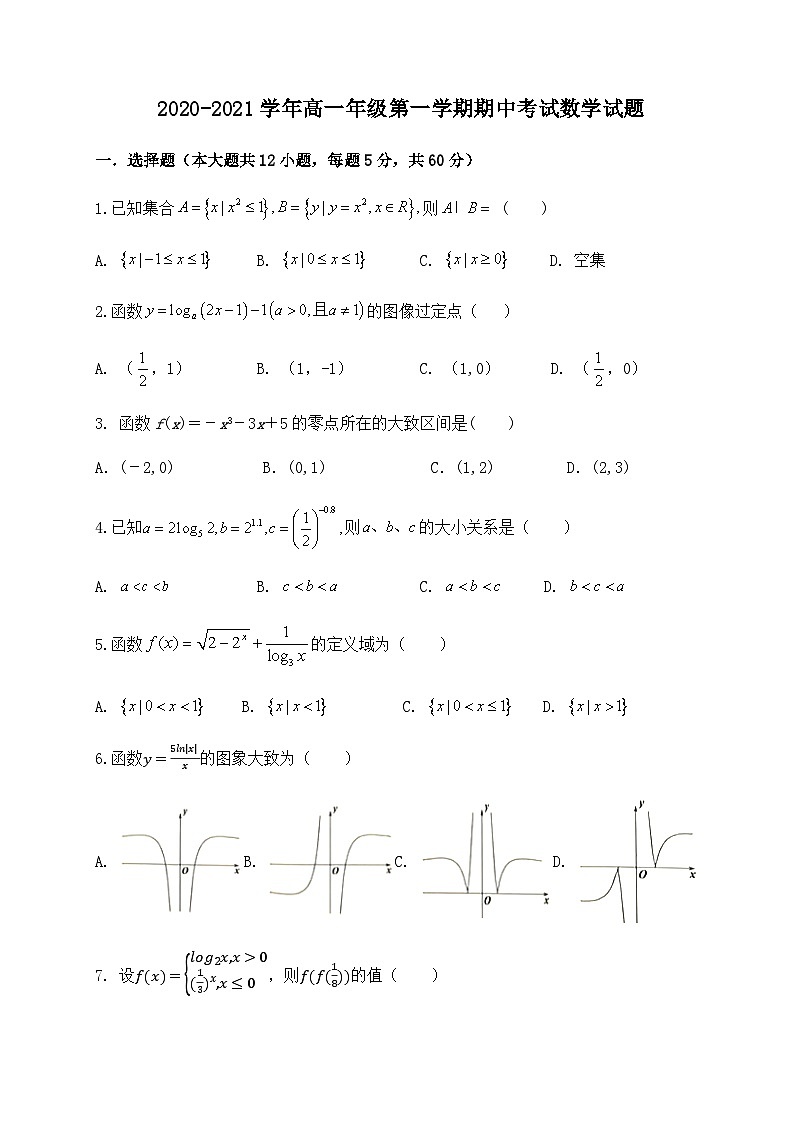 2020-2021学年高一年级第一学期期中考试数学试题
一．选择题（本大题共12小题，每题5分，共60分）
1.已知集合A={x|x²≤1},B={y|y=x²,x∈R},则A| B=（　　）
A. {x|-1≤x≤1}　B. {x|0≤x≤1}　C. {x|x≥0}　D. 空集
2.函数y=logₐ(2x-1)-1(a>0,且a≠1)的图像过定点（　）
A. （1/2，1）　B. （1，-1）　C. （1,0）　D. （1/2，0）
3. 函数f(x)＝－x³－3x＋5的零点所在的大致区间是(　　)
A.(－2,0)　B.(0,1)　C.(1,2)　D.(2,3)
4.已知a=2log₅2,b=2^1.1,c=(1/2)^-0.8,则a、b、c的大小关系是（　　）
A. a<c<b　B. c<b<a　C. a<b<c　D. b<c<a
5.函数f(x)=√(2-2^x)+1/log₃x的定义域为（　　）
A. {x|0<x<1}　B. {x|x<1}　C. {x|0<x≤1}　D. {x|x>1}
6.函数y=5ln|x|/x的图象大致为（　　）
A. y O x B. y O x C. y O x D. y O x
7. 设f(x)={log₂x,x>0 (1/3)^x,x≤0，则f(f(1/8))的值（　　）